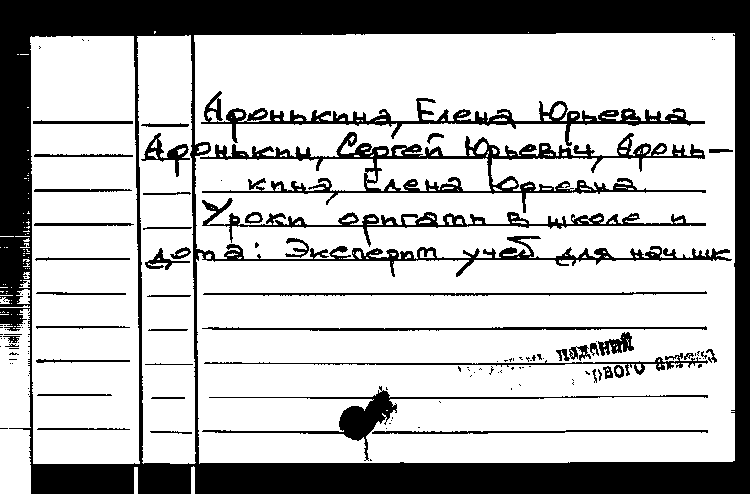 Афонькина, Елена Юрьевна
Афонькин, Сергей Юрьевич, Афонь-
кина, Елена Юрьевна
Уроки оригами в школе и
дома: Эксперим учеб. для нач. шк
изданий
ового